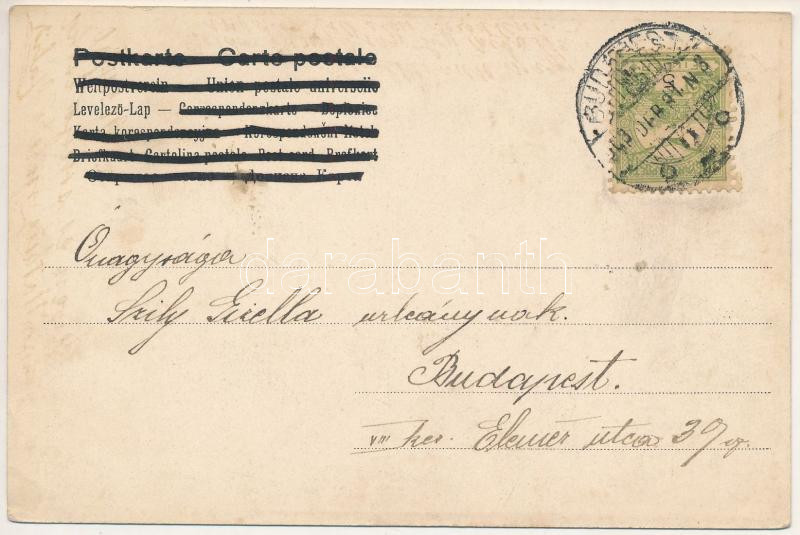 Postkarte — Carte postale
Weltpostverein — Union postale universelle
Levelező-Lap — Correspondenzkarte — Dopisnice
Karta korespondencyjna — Korespondenční lístek
Briefkaart — Cartolina postale — Post card — Brefkort
BUDAPEST
Önagysága
Szily Gizella urleánynak.
Budapest.
VIII ker. Elemér utca 39
darabanth